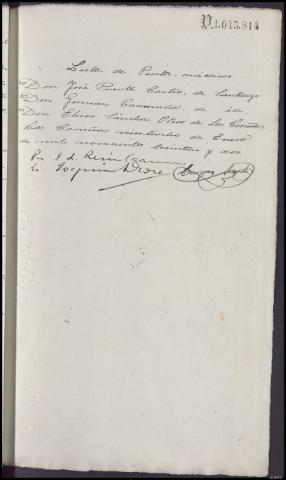 D.1.043.814
Lista de Peritos-médicos
Don José Puente Castro, de Santiago
Don German Caamaño, de id.
Don Eliseo Sánchez Otero de la Coruña
La Coruña veintiocho de Enero
de mil novecientos treinta y dos
Por
Joaquin